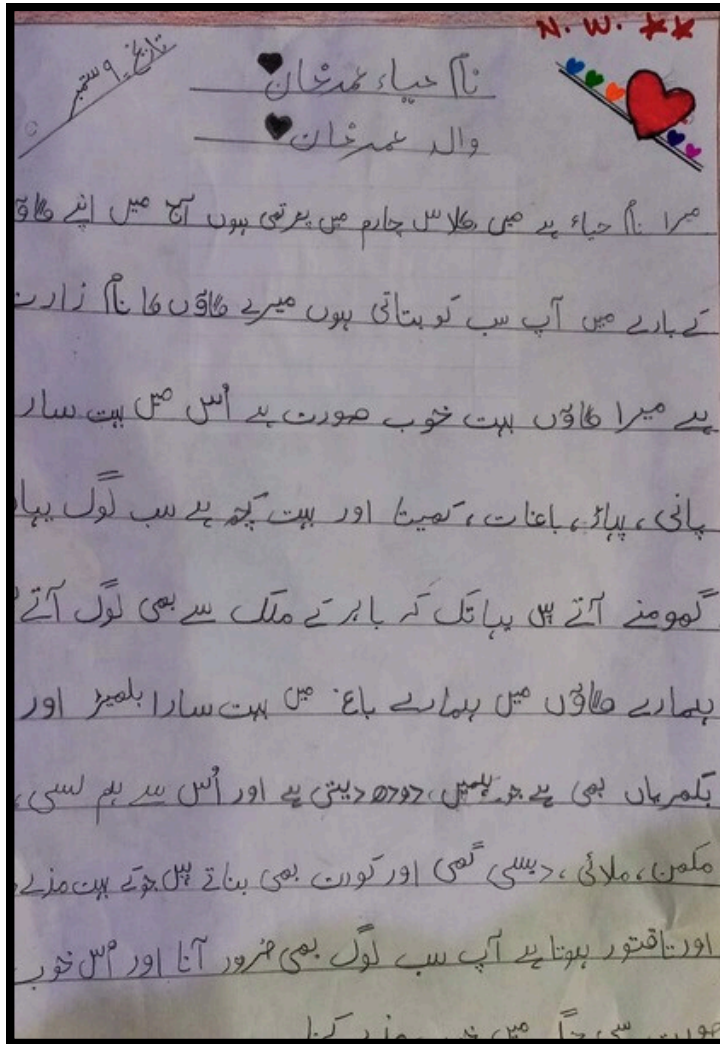 N. W. **
تاریخ ۹ ستمبر
نام حیاء عمدخان
والد عمدخان
میرا نام حیاء ہے میں کلاس چارم میں پرتھی ہوں آج میں اپنے گاؤ
کے بارے میں آپ سب کو بتاتی ہوں میرے گاؤں کا نام زارت
ہے میرا گاؤں بہت خوب صورت ہے اُس میں بہت سار
پانی، پہاڑ، باغات، کھیتا اور بہت کچھ ہے سب لوگ یہا
گھومنے آتے ہیں یہا تک کہ باہر کے ملک سے بھی لوگ آتے
ہمارے گاؤں میں ہمارے باغ میں بہت سارا بھیڑ اور
بکریاں بھی ہے جو ہمیں دودھ دیتی ہے اور اُس سے ہم لسی،
مکھن، ملائی، دیسی گھی اور کورت بھی بناتے ہیں جوکے بہت مزے
اور تاقتور ہوتا ہے آپ سب لوگ بھی ضرور آنا اور اس خوب
صورت سی جگہ میں